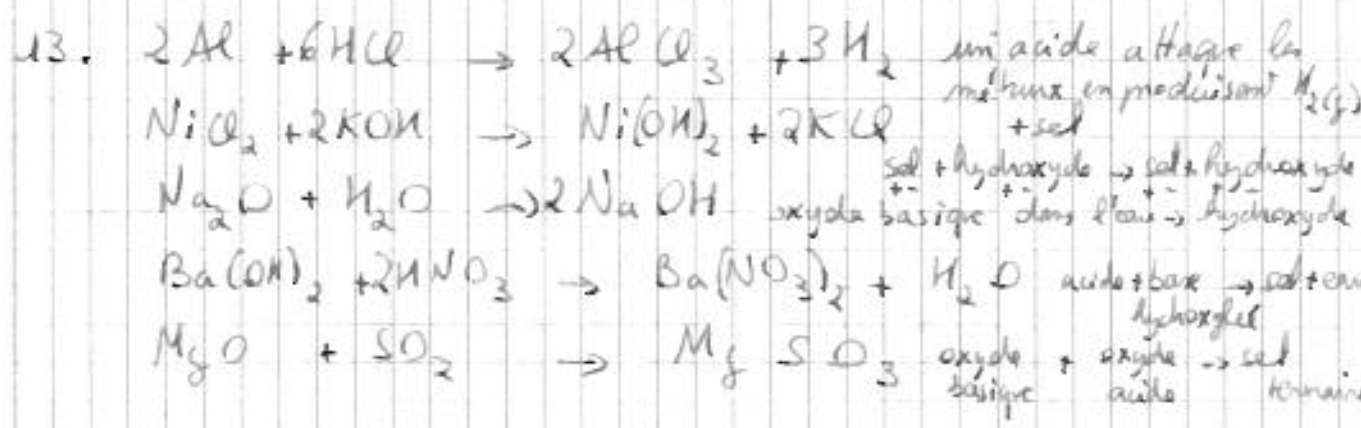 13. 2Al + 6HCl → 2AlCl₃ + 3H₂ un acide attaque les
métaux en produisant H₂(g)
+ sel
NiCl₂ + 2KOH → Ni(OH)₂ + 2KCl
sel + hydroxyde → sel + hydroxyde
+- +- +- +-
Na₂O + H₂O → 2NaOH oxyde basique dans l'eau → hydroxyde
Ba(OH)₂ + 2HNO₃ → Ba(NO₃)₂ + H₂O acide + base → sel + eau
hydroxyles
MgO + SO₂ → MgSO₃ oxyde + oxyde → sel
basique acide ternaire